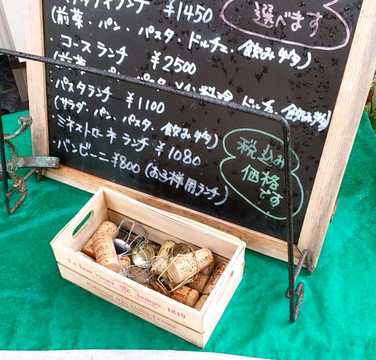 ランチ ¥1450
(前菜、パン、パスタ、ドルチェ、飲み物)
選べます
・コースランチ ¥2500
・パスタランチ ¥1100
(サラダ、パン、パスタ、飲み物)
・ミネストローネランチ ¥1080
・バンビーニ ¥800 (お子様用ランチ)
税込み
価格
です
Le bon vieux temps 1849